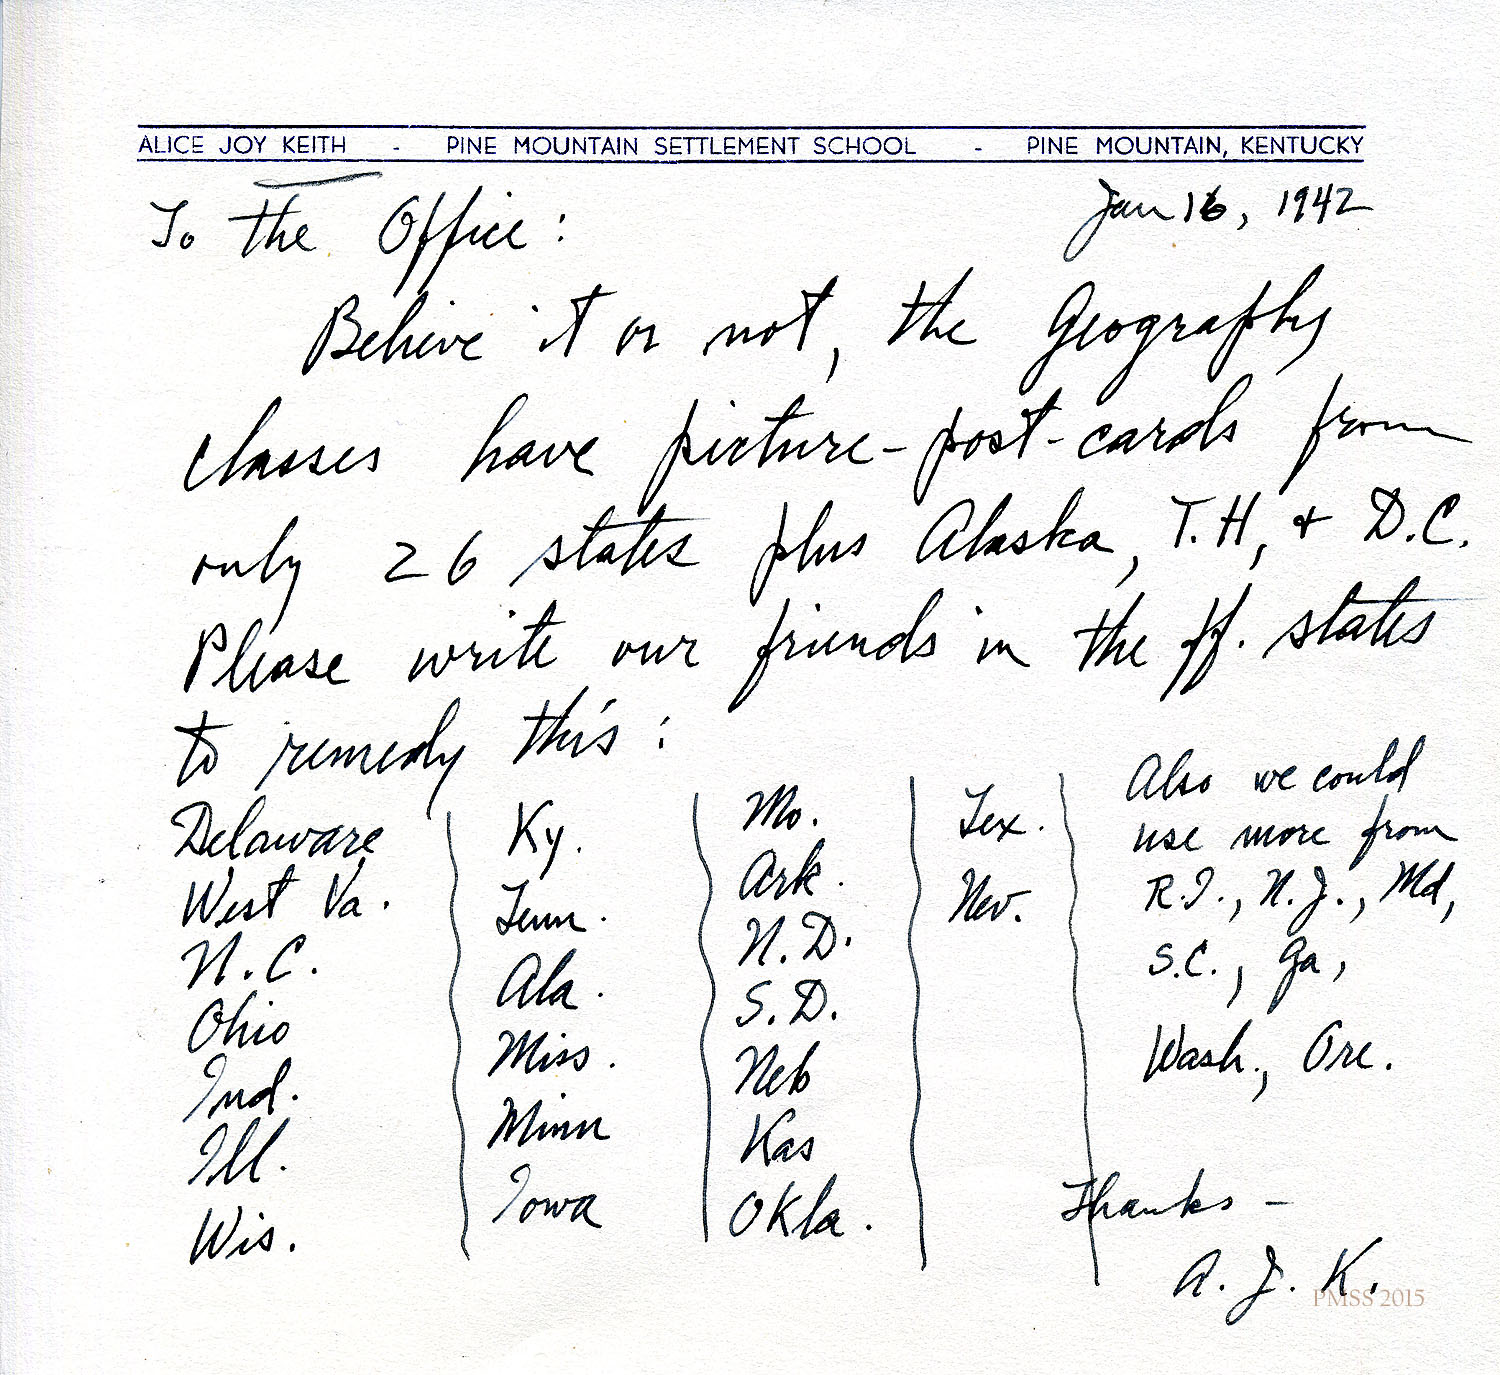 ALICE JOY KEITH - PINE MOUNTAIN SETTLEMENT SCHOOL - PINE MOUNTAIN, KENTUCKY
Jan 16, 1942
To the Office:
Believe it or not, the Geography
classes have picture-post-cards from
only 26 states plus Alaska, T.H, & D.C.
Please write our friends in the ff. states
to remedy this:
Delaware
West Va.
N.C.
Ohio
Ind.
Ill.
Wis.
Ky.
Tenn.
Ala.
Miss.
Minn
Iowa
Mo.
Ark.
N.D.
S.D.
Neb
Kas
Okla.
Tex.
Nev.
Also we could
use more from
R.I., N.J., Md,
S.C., Ga,
Wash., Ore.
Thanks -
A. J. K.
PMSS 2015